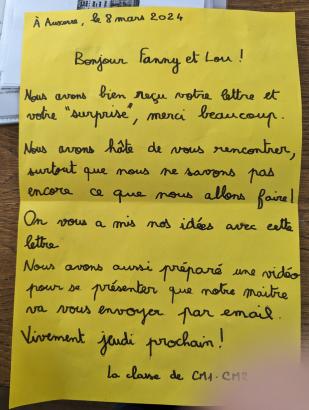 À Auxerre, le 8 mars 2024
Bonjour Fanny et Lou !
Nous avons bien reçu votre lettre et
votre "surprise", merci beaucoup.
Nous avons hâte de vous rencontrer,
surtout que nous ne savons pas
encore ce que nous allons faire !
On vous a mis nos idées avec cette
lettre
Nous avons aussi préparé une vidéo
pour se présenter que notre maitre
va vous envoyer par email.
Vivement jeudi prochain !
La classe de CM1-CM2